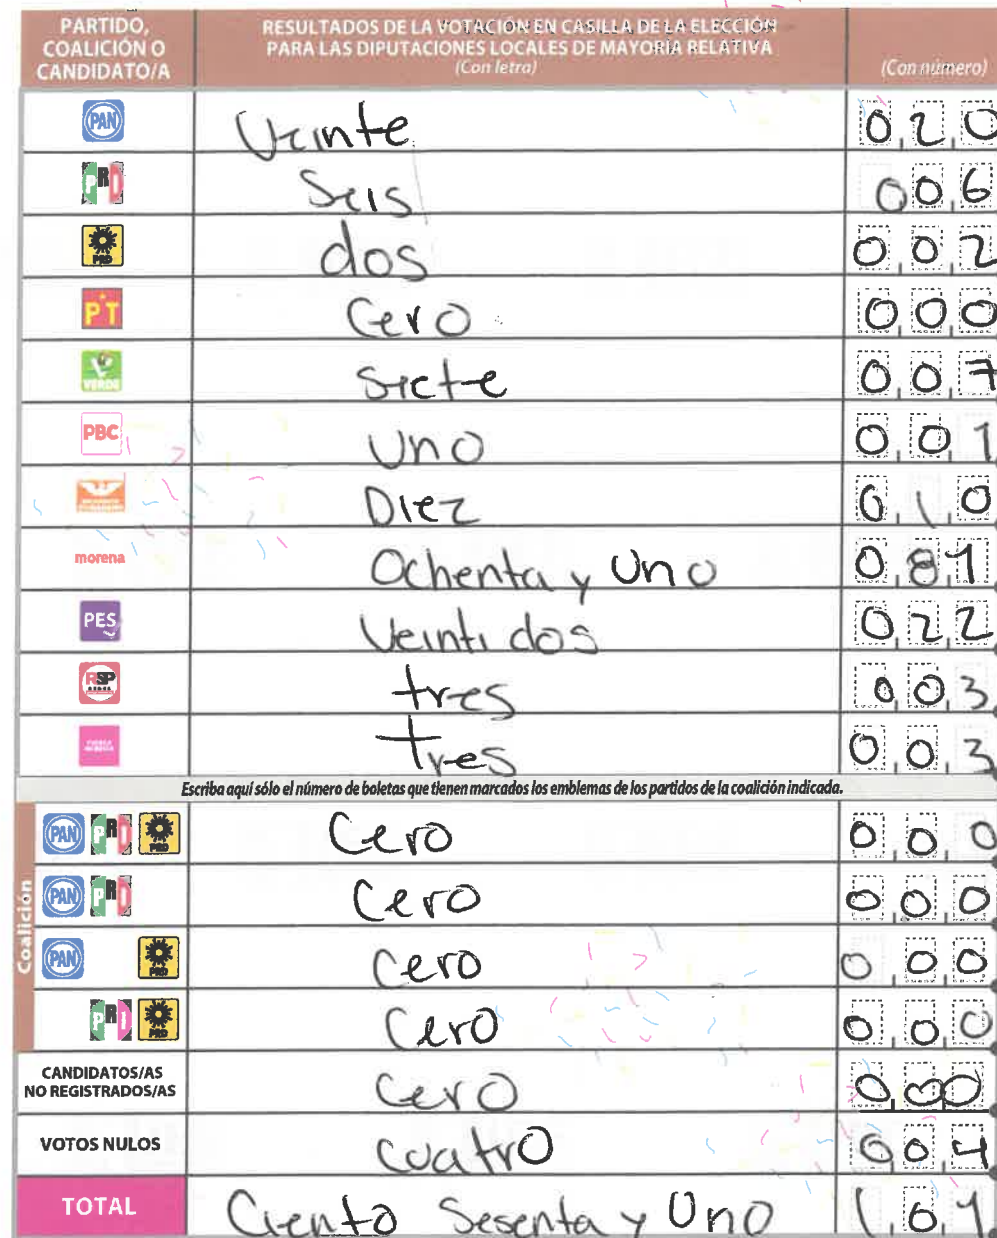 PARTIDO, COALICIÓN O CANDIDATO/A
RESULTADOS DE LA VOTACIÓN EN CASILLA DE LA ELECCIÓN PARA LAS DIPUTACIONES LOCALES DE MAYORÍA RELATIVA
(Con letra)
(Con número)
PAN Veinte 020
PRI Seis 006
PRD dos 002
PT Cero 000
VERDE Siete 007
PBC Uno 001
Diez 010
morena Ochenta y Uno 081
PES Veinti dos 022
RSP tres 003
tres 003
Escriba aquí sólo el número de boletas que tienen marcados los emblemas de los partidos de la coalición indicada.
Coalición
PAN PRI PRD Cero 000
PAN PRI Cero 000
PAN PRD Cero 000
PRI PRD Cero 000
CANDIDATOS/AS NO REGISTRADOS/AS Cero 000
VOTOS NULOS Cuatro 004
TOTAL Ciento Sesenta y Uno 161